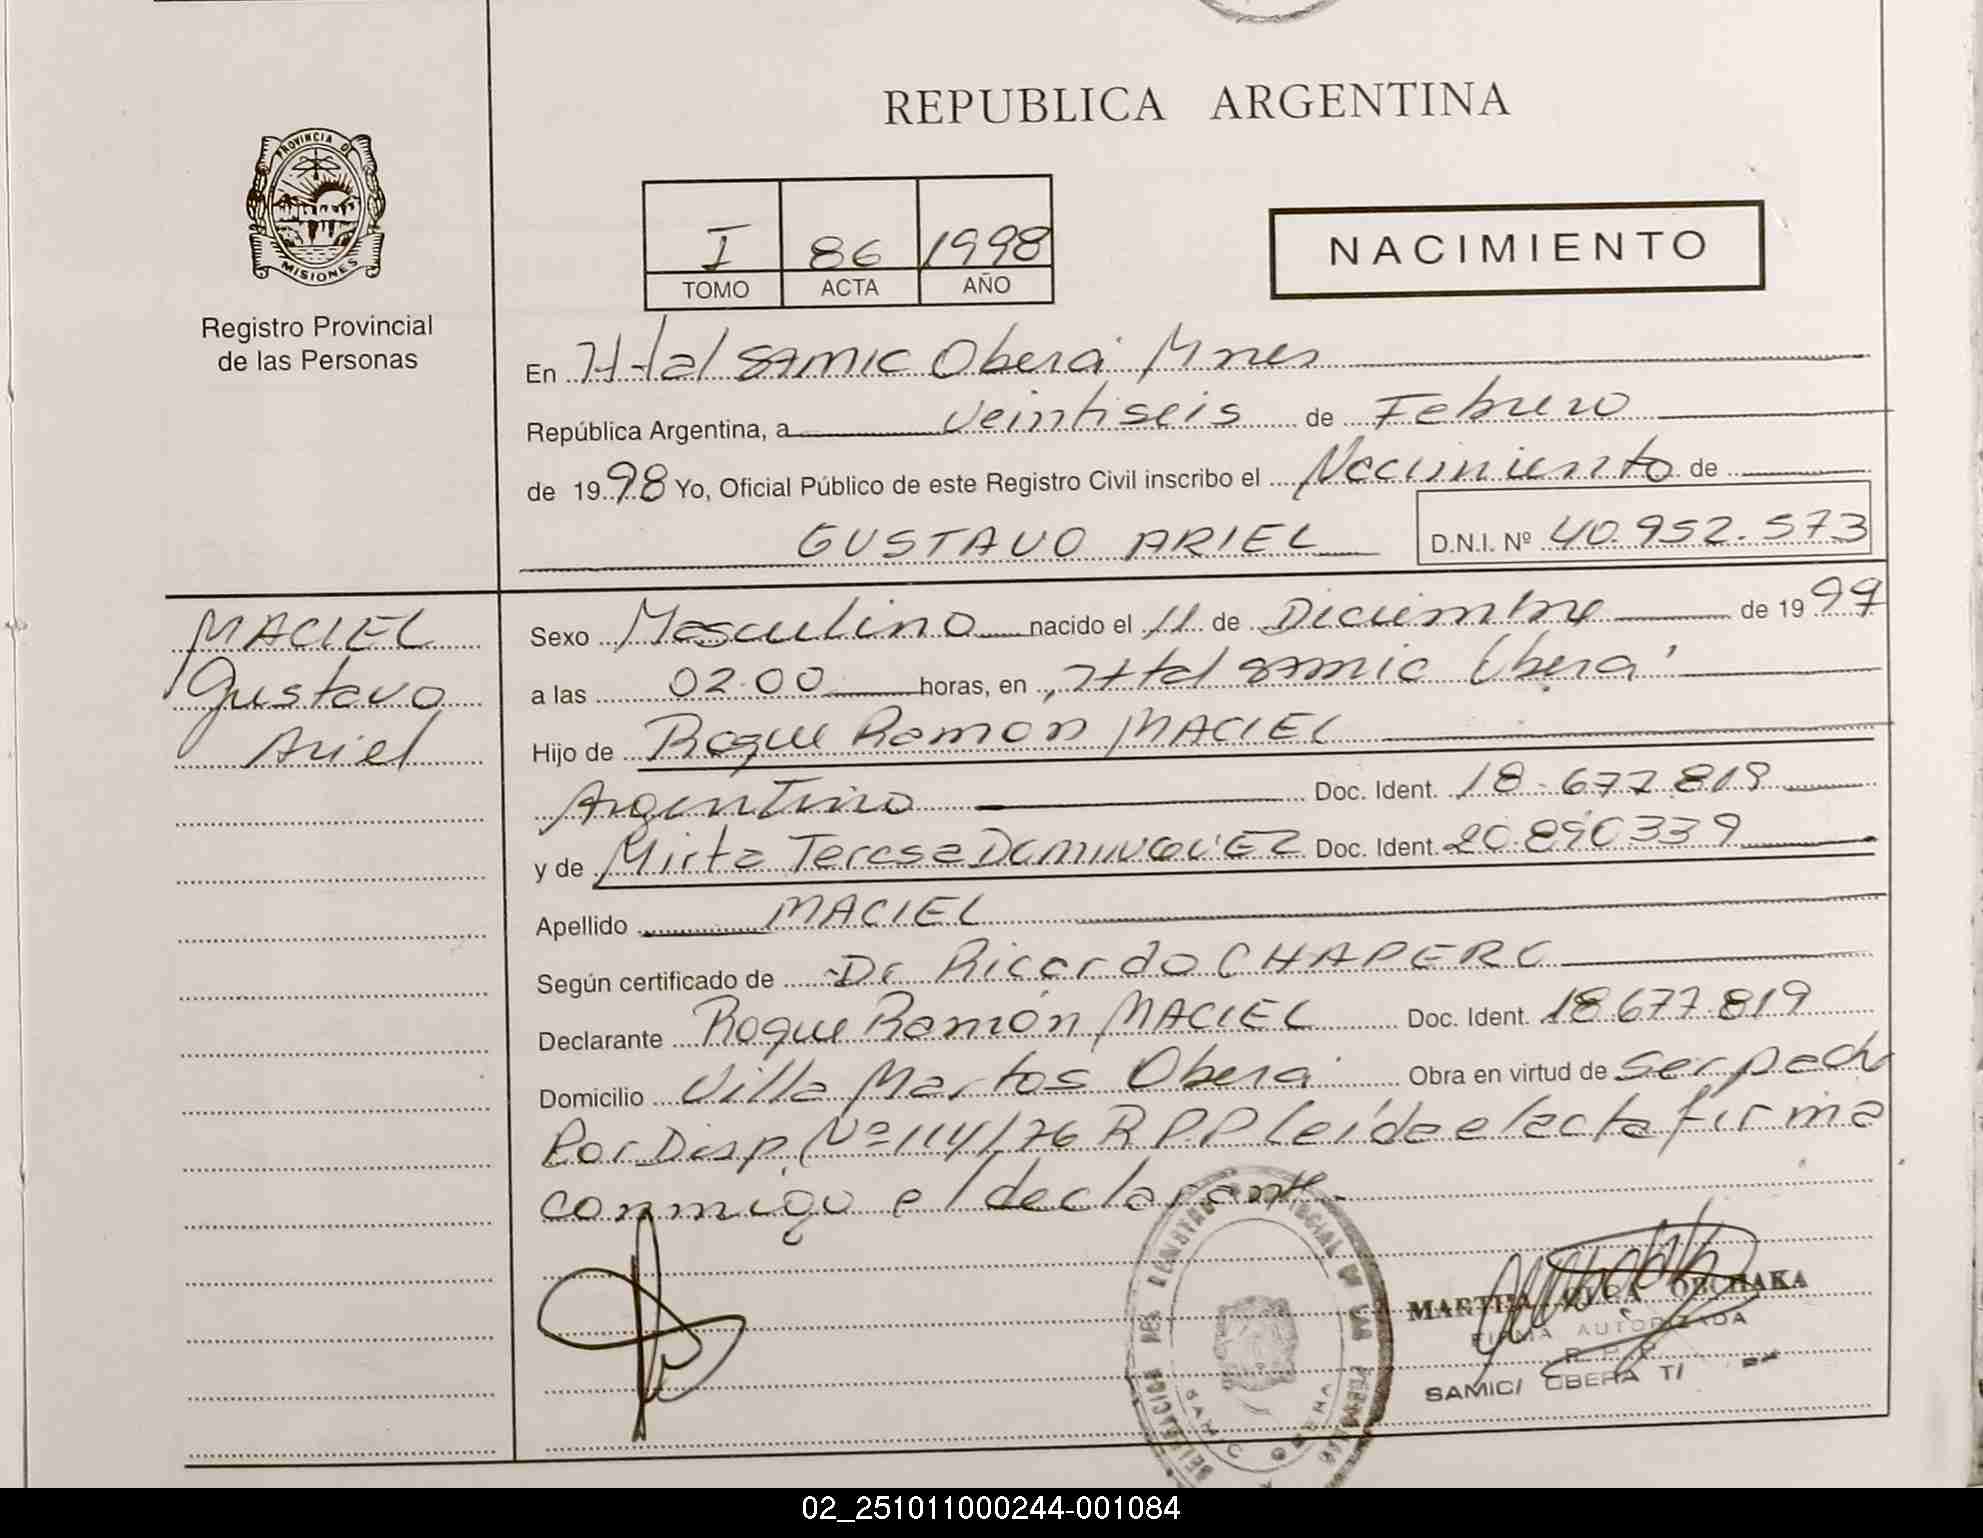 REPUBLICA ARGENTINA
PROVINCIA DE
MISIONES
Registro Provincial
de las Personas
I 86 1998
TOMO ACTA AÑO
NACIMIENTO
En Htal SAMIC Oberá Mnes
República Argentina, a Veintiseis de Febrero
de 1998 Yo, Oficial Público de este Registro Civil inscribo el Nacimiento de
GUSTAVO ARIEL D.N.I. Nº 40.952.573
MACIEL
Gustavo
Ariel
Sexo Masculino nacido el 11 de Diciembre de 1997
a las 02.00 horas, en Htal SAMIC Oberá
Hijo de Roque Ramón MACIEL
Argentino Doc. Ident. 18.677.819
y de Mirta Teresa DOMINGUEZ Doc. Ident. 20.890339
Apellido MACIEL
Según certificado de Dr Ricardo CHAPERO
Declarante Roque Ramón MACIEL Doc. Ident. 18.677.819
Domicilio Villa Martos Oberá Obra en virtud de ser pedido
Por Disp. Nº 114/76 R P.P leída el acta firma
conmigo el declarante.
MARTHA OLGA OBCHAKA
FIRMA AUTORIZADA
R.P.P.
SAMIC/ OBERA
DELEGACION DEL REGISTRO PROVINCIAL DE LAS PERSONAS
SAMIC OBERA
02_251011000244-001084